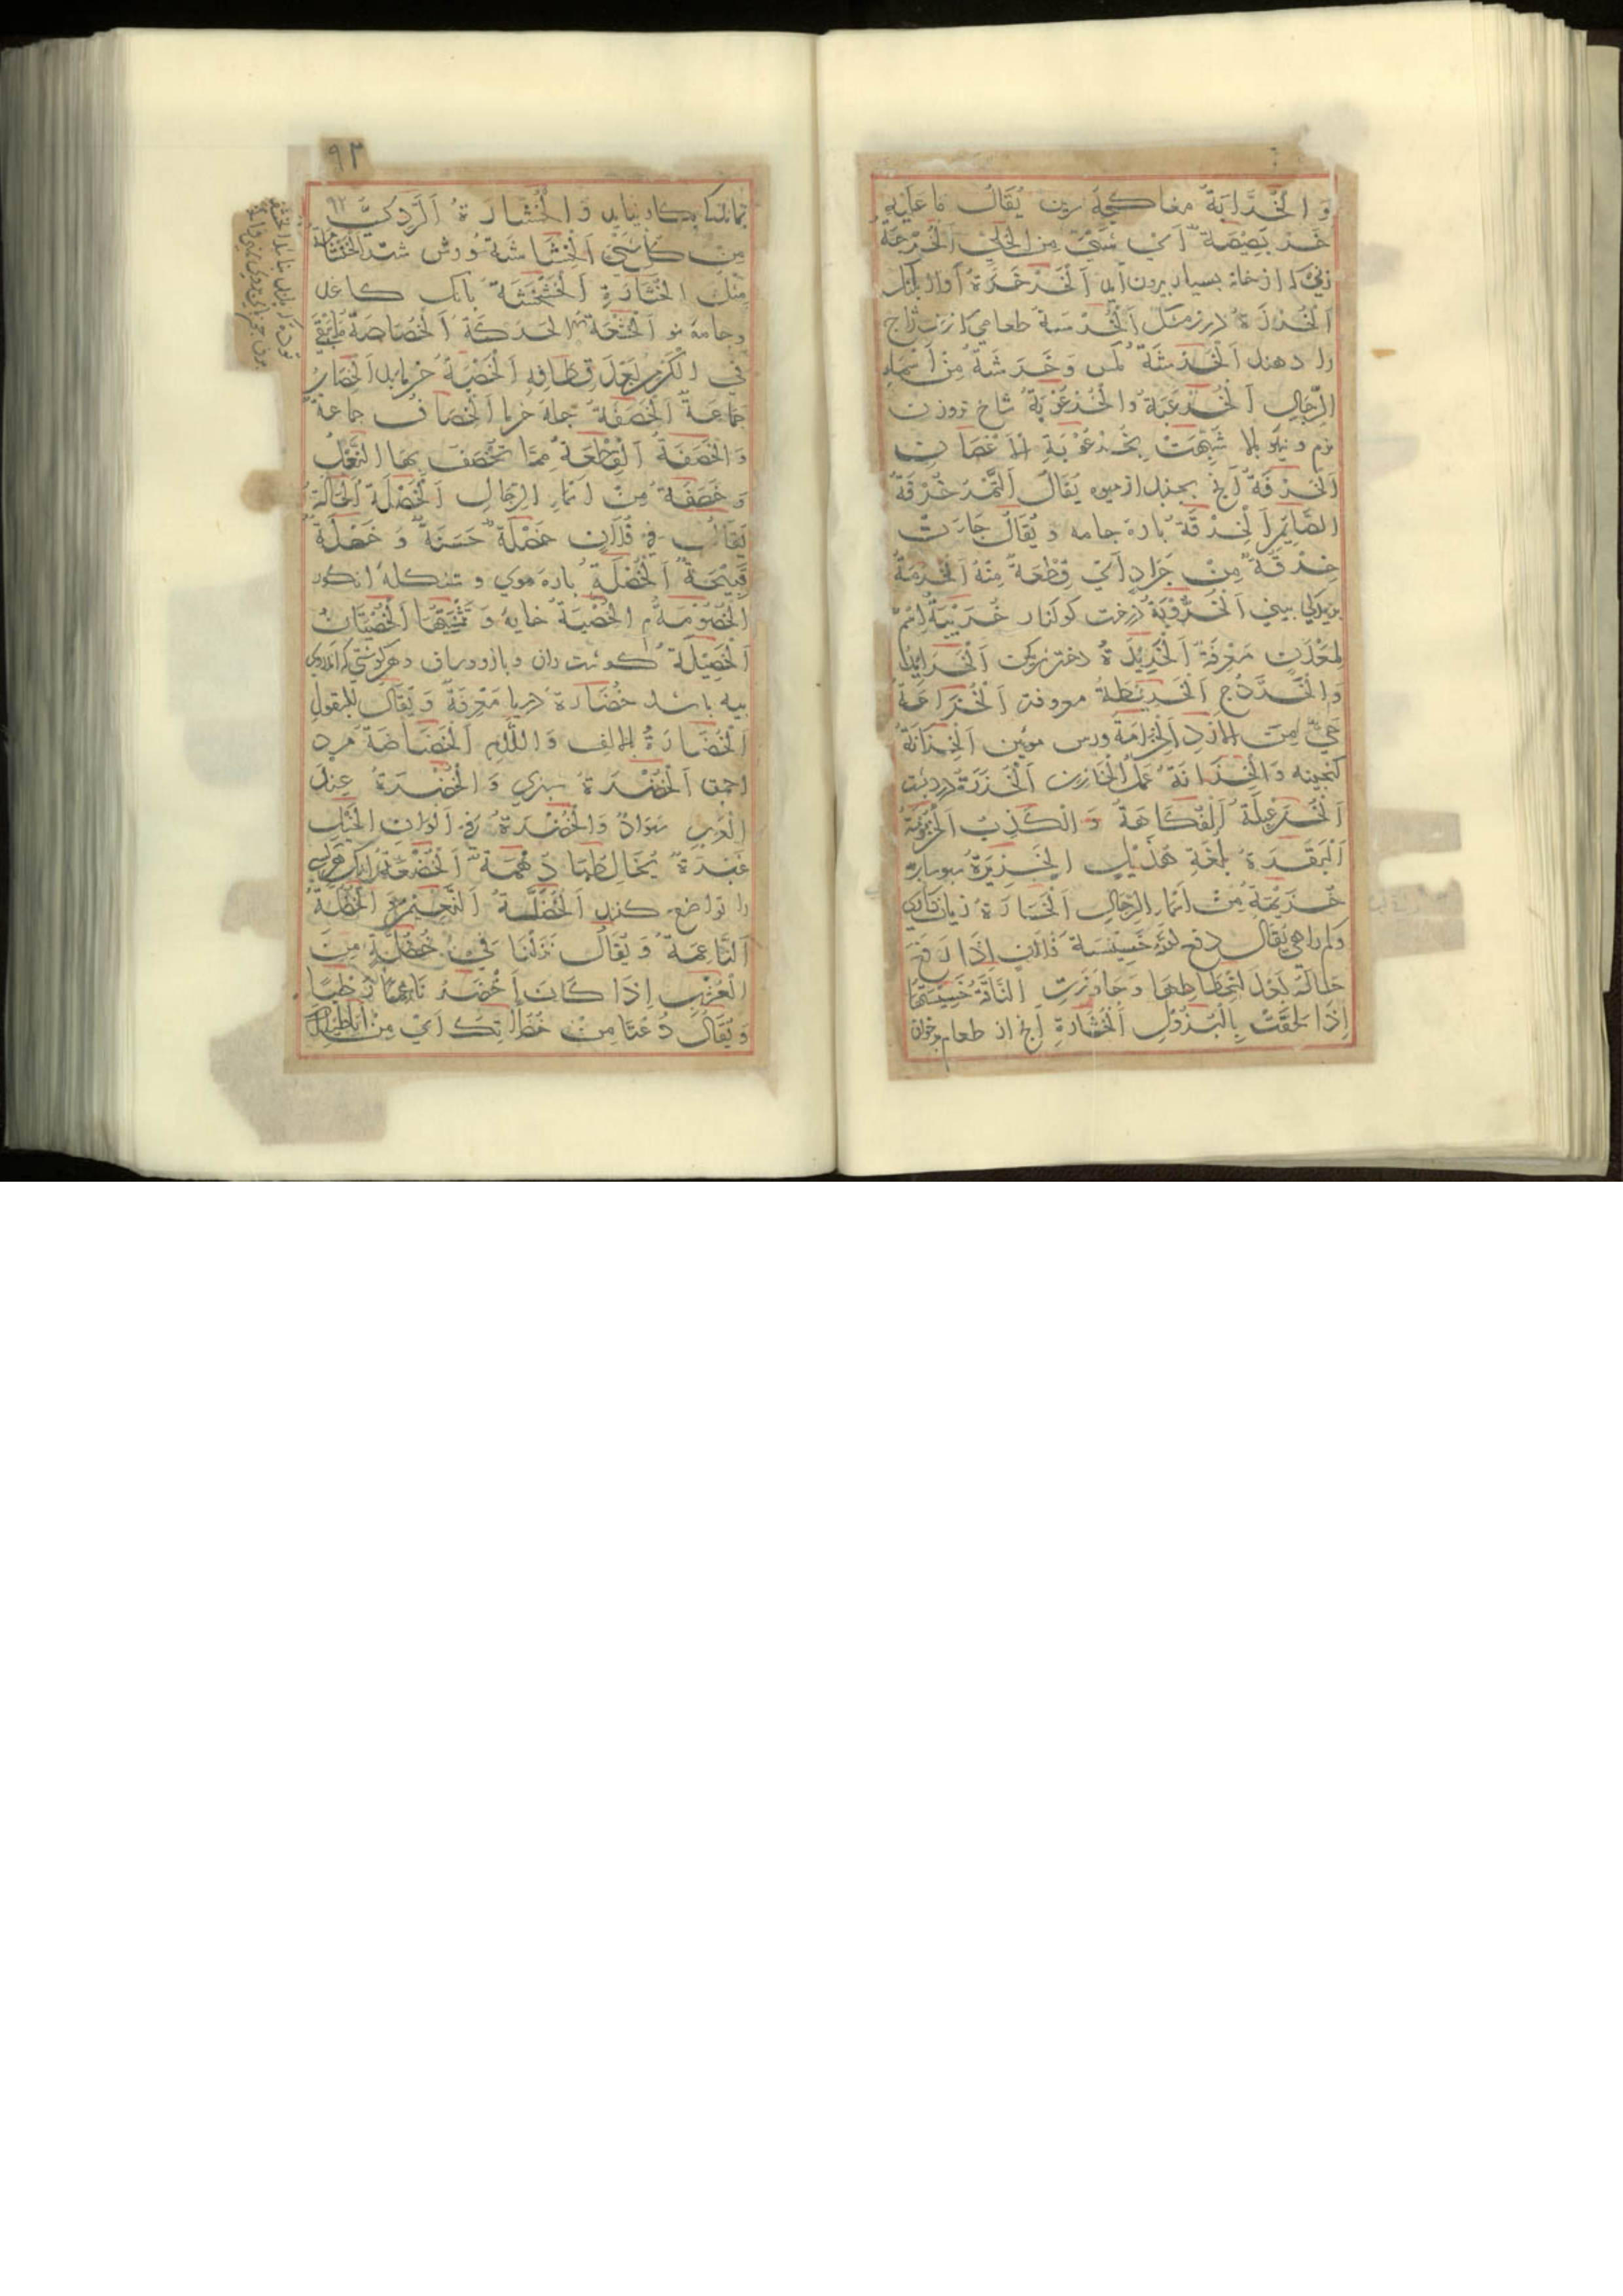 وَ الْخَرَّابَةُ مغاكچهٔ سرين يُقَالُ مَا عَلَيْهِ
خَرْبَصِيْصَةٌ اَيْ شَيْءٌ مِنَ الْحُلِيِّ اَلْخُرَجَةُ
زني كه از خانه بسيار بيرون آيد اَلْخَرْخَرَةُ آواز پلنك
اَلْخَرَزَةُ اَلْخُرْسَةُ طعامي كه زن زاج
را دهند اَلْخَرَشَةُ مكس وَ خَرَشَةُ مِنْ اَسْمَاءِ
الرِّجَالِ اَلْخُرْعُبَةُ وَ الْخُرْعُوْبَةُ شاخ
نرم و نيكو بالا شُبِّهَتْ بِخُرْعُوْبَةِ الْاَغْصَانِ
اَلْخُرْفَةُ آنچ بچنند از ميوه يُقَالُ اَلتَّمْرُ خُرْفَةُ
الصَّائِمِ اَلْخِرْقَةُ پارهٔ جامه وَ يُقَالُ جَاءَتْ
خِرْقَةٌ مِنْ جَرَادٍ اَيْ قِطْعَةٌ مِنْهُ اَلْخَرَمَةُ
بيني اَلْخَرُّوْبَةُ درخت كوكنار خُزَيْبَةُ اِسْمُ
لِمَعْدَنٍ مَعْرِفَةٌ اَلْخَرِيْدَةُ دختر اَلْخَرَايِدُ
وَ الْخُرَّدُ ج اَلْخَرِيْطَةُ معروفة اَلْخُزَاعَةُ
حَيٌّ مِنَ الْاَزْدِ اَلْخِزَامَةُ ورس موئين اَلْخِزَانَةُ
كنجينه وَ الْخِزَانَةُ عَمَلُ الْخَازِنِ اَلْخَزَرَةُ درد پشت
اَلْخُزَعْبِلَةُ اَلْفُكَاهَةُ وَ الْكَذِبُ اَلْخَزُوْمَةُ
اَلْبَقَرَةُ بِلُغَةِ هُذَيْلٍ اَلْخَزِيْرَةُ
خُزَيْمَةُ مِنْ اَسْمَاءِ الرِّجَالِ اَلْخَسَارَةُ زيان
وكم راهي يُقَالُ رَفَعَ اللهُ خَسِيْسَةَ فُلَانٍ اِذَا رَفَعَ
حَالَهُ بَعْدَ انْحِطَاطِهَا وَ جَاوَزَتِ النَّاقَةُ خَسِيْسَتَهَا
اِذَا لَحِقَتْ بِالْبُزُوْلِ اَلْخُشَارَةِ آنچ از طعام بر خوان
٩٣
٩٢
بماند كه بكار نيايد وَ الْخُشَارَةُ اَلرَّدِيُّ
مِنْ كُلِّ شَيْءٍ اَلْخُشَاشَةُ
مِثْلُ الْخُشَارَةِ اَلْخَشْخَشَةُ بانك كاغذ
و جامهٔ نو اَلْخَشْفَةُ اَلْحَرَكَةُ اَلْخُصَاصَةُ مَا يَبْقَى
فِي الْكَرْمِ بَعْدَ قِطَافِهِ اَلْخَصْبَةُ خرمابن اَلْخِصَابُ
جَمَاعَةٌ اَلْخَصَفَةُ جلهٔ خرما اَلْخِصَافُ جماعة
وَ الْخَصَفَةُ اَلْقِطْعَةُ مِمَّا تُخْصَفُ بِهَا النَّعْلُ
وَ خَصَفَةُ مِنْ اَسْمَاءِ الرِّجَالِ اَلْخَصْلَةُ اَلْحَالَةُ
يُقَالُ فِي فُلَانٍ خَصْلَةٌ حَسَنَةٌ وَ خَصْلَةٌ
قَبِيْحَةٌ اَلْخُصْلَةُ پارهٔ موي و شنكلهٔ انكور
اَلْخُصُوْمَةُ م اَلْخُصْيَةُ خايه وَ تَثْنِيَتُهَا اَلْخُصْيَتَانِ
اَلْخَصِيْلَةُ كوشت ران و بازو و ساق و هر كوشتي كه اندروي
پيه باشد خُضَارَةُ دريا مَعْرِفَةٌ وَ يُقَالُ لِلْبُقُوْلِ
اَلْخُضَارَةُ بالالف وَ اللَّامِ اَلْخَضَاضَةُ مرد
احمق اَلْخُضْرَةُ سبزي وَ الْخُضْرَةُ عِنْدَ
الْعَرَبِ سَوَادٌ وَ الْخُضْرَةُ فِي اَلْوَانِ الْخَيْلِ
غُبْرَةٌ يُخَالِطُهَا دُهْمَةٌ اَلْخُضَعَةُ
را تواضع كند اَلْخُضُلَّةُ اَلنَّعِيْمُ وَ الْخُضُلَّةُ
اَلنَّاعِمَةُ وَ يُقَالُ نَزَلْنَا فِي خُضُلَّةٍ مِنَ
الْعُشْبِ اِذَا كَانَ اَخْضَرَ نَاعِمًا رَطْبًا
وَ يُقَالُ دَعْنَا مِنْ خُضُلَّاتِكَ اَيْ مِنْ اَبَاطِيْلِكَ